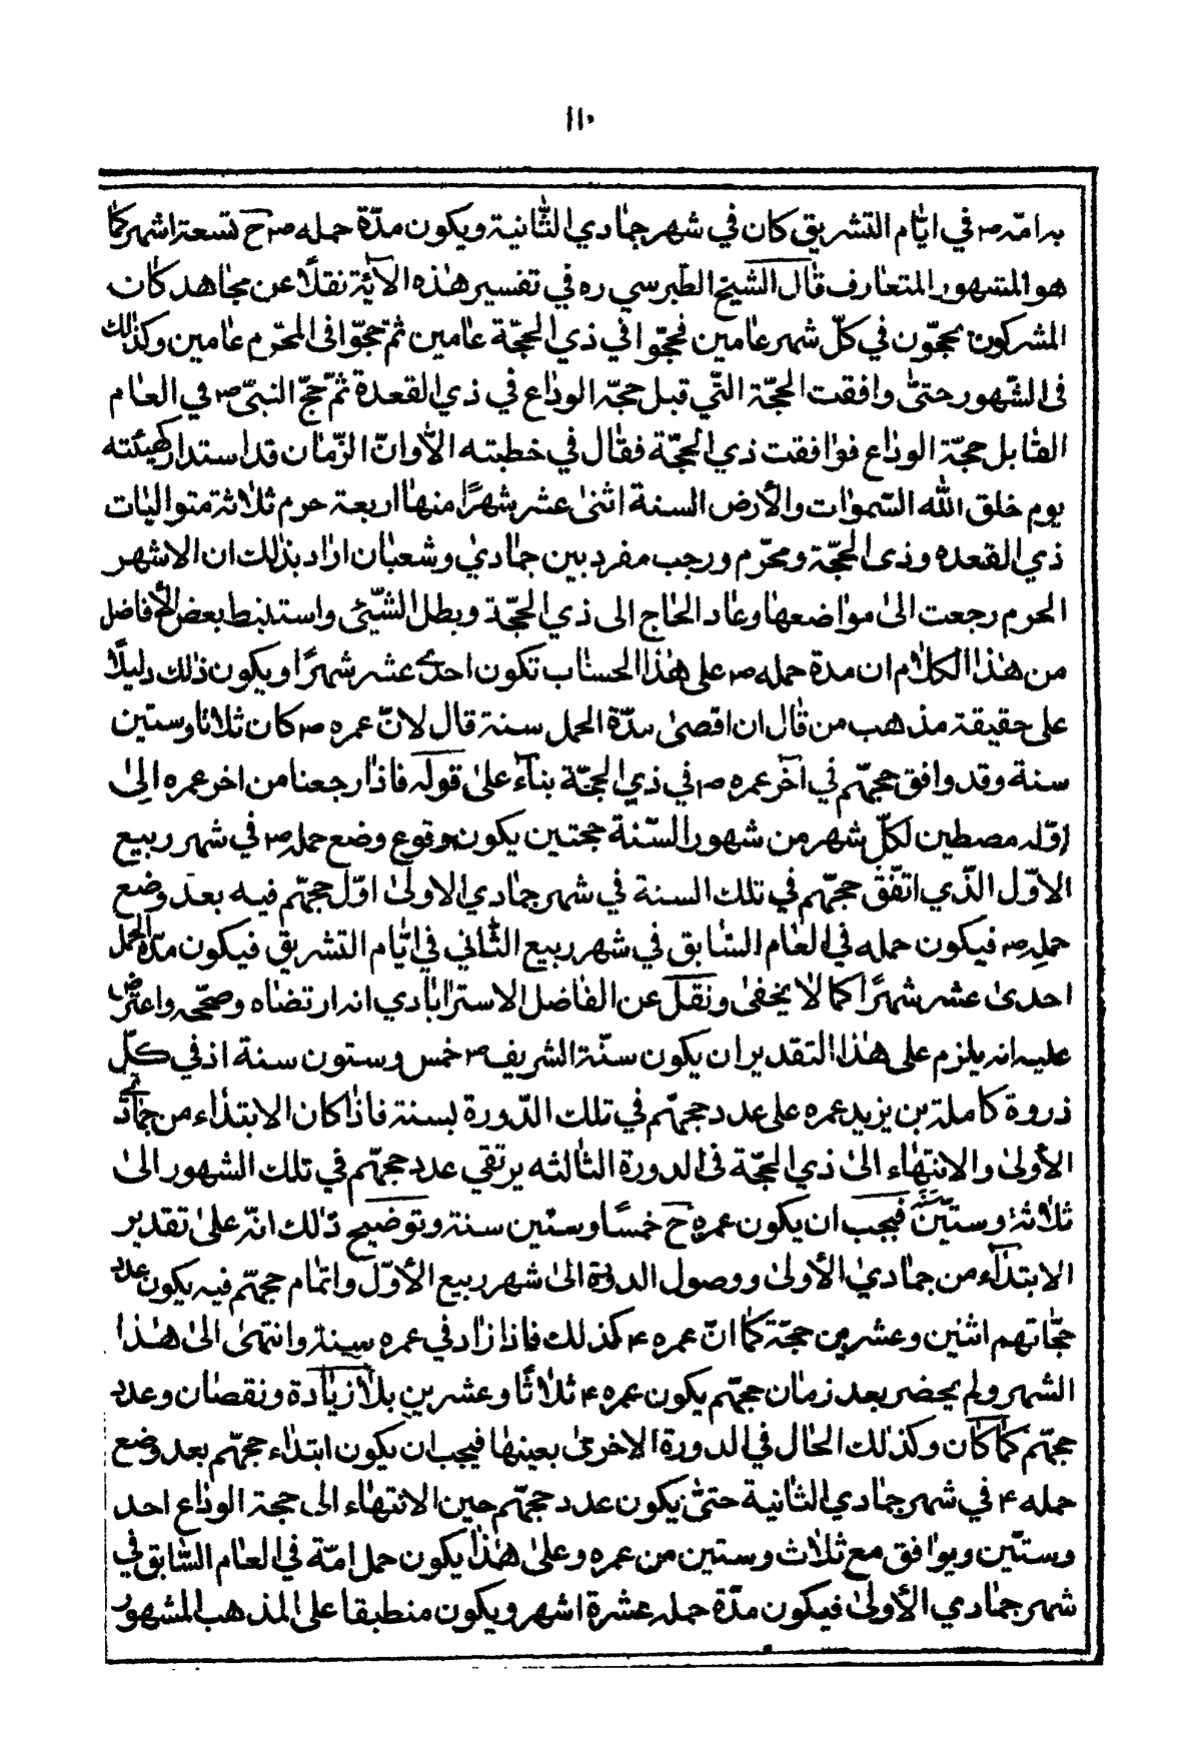 ١١٠
به امّه ص في ايّام التشريق كان في شهر جمادي الثّانية ويكون مدّة حمله ص ح تسعة اشهر كما
هو المشهور المتعارف قال الشيخ الطّبرسي ره في تفسير هذه الآية نقلًا عن مجاهد كان
المشركون يحجّون في كلّ شهر عامين فحجّوا في ذي الحجّة عامين ثمّ حجّوا فى المحرّم عامين وكذلك
فى الشّهور حتىّ وافقت الحجّة التّي قبل حجّة الوداع في ذي القعدة ثمّ حجّ النبىّ ص في العام
القابل حجّة الوداع فوافقت ذي الحجّة فقال في خطبته الأوانّ الزّمان قد استدار كهيئته
يوم خلق الله السّموات والأرض السنة اثنى عشر شهرًا منها اربعة حرم ثلاثة متواليات
ذي القعده وذى الحجّة ومحرّم ورجب مفرد بين جمادي وشعبان اراد بذلك ان الاشهر
الحرم رجعت الى مواضعها وعاد الحاج الى ذي الحجّة وبطل الشّيئى واستنبط بعض الأفاضل
من هذا الكلام ان مدة حمله ص على هذا الحساب تكون احدى عشر شهرًا ويكون ذلك دليلًا
على حقيقة مذهب من قال ان اقصى مدّة الحمل سنة قال لانّ عمره ص كان ثلاثا وستين
سنة وقد وافق حجهّم في آخر عمره ص في ذي الحجّة بناءً على قوله فاذا رجعنا من اخر عمره الى
اوّله مصطين لكلّ شهر من شهور السّنة حجتين يكون وقوع وضع حمله ص في شهر ربيع
الاوّل الذّي اتفّق حجهّم في تلك السنة في شهر جمادي الاولى اوّل حجهّم فيه بعد وضع
حمله ص فيكون حمله في العام السّابق في شهر ربيع الثّاني في ايّام التشريق فيكون مدّة الحمل
احدى عشر شهرًا كما لا يخفى ونقل عن الفاضل الاسترابادي انه ارتضاه وصحّحه واعترض
عليه انه يلزم على هذا التقدير ان يكون سنّة الشريف ص خمس وستون سنة اذ في كلّ
ذروة كاملة بن يزيد عمره على عدد حجهّم في تلك الدّورة بسنة فاذا كان الابتداء من جمادى
الأولى والانتهاء الى ذي الحجّة فى الدورة الثالثه يرتقي عدد حجهّم في تلك الشهور الى
ثلاثة وستيّن فيجب ان يكون عمره ح خمسًا وستين سنة وتوضيح ذلك انّه على تقدير
الابتداء من جمادي الأولى ووصول الدورة الى شهر ربيع الأوّل واتمام حجهّم فيه يكون عدد
حجّاتهم اثنين وعشرين حجّة كما انّ عمره ع كذلك فاذا زاد في عمره سنة وانتهى الى هذا
الشهر ولم يحضر بعد زمان حجهّم يكون عمره ع ثلاثًا وعشرين بلا زيادة ونقصان وعدد
حجهّم كما كان وكذلك الحال في الدورة الاخرى بعينها فيجب ان يكون ابتداء حجهّم بعد وضع
حمله ع في شهر جمادي الثانية حتىّ يكون عدد حجهّم حين الانتهاء الى حجة الوداع احد
وستّين ويوافق مع ثلاث وستين من عمره وعلى هذا يكون حمل امّة في العام السّابق في
شهر جمادي الأولى فيكون مدّة حمله عشرة اشهر ويكون منطبقا على المذهب المشهور